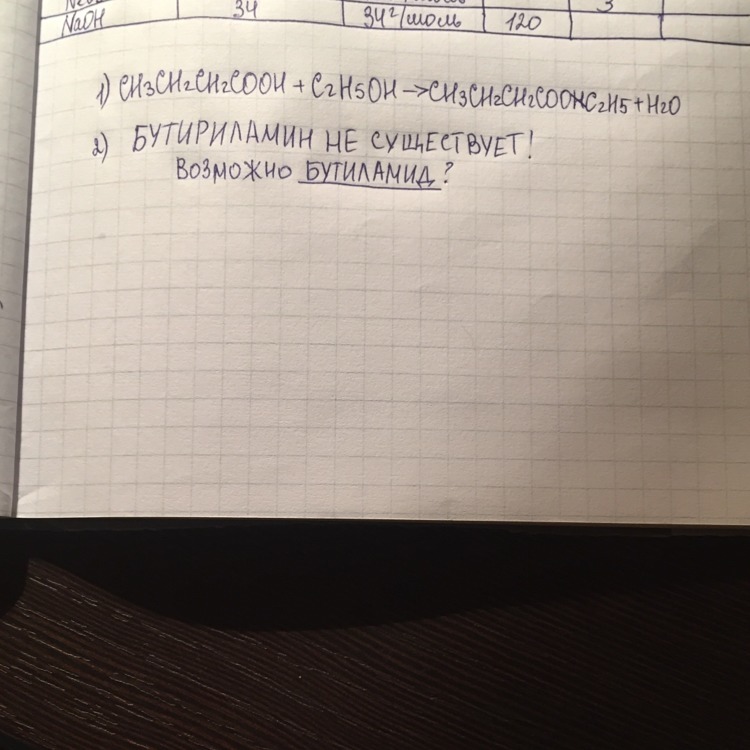 NaOH 34 34 г/моль 120
1) CH3CH2CH2COOH + C2H5OH → CH3CH2CH2COOHC2H5 + H2O
2) БУТИРИЛАМИН НЕ СУЩЕСТВУЕТ!
ВОЗМОЖНО БУТИЛАМИД?